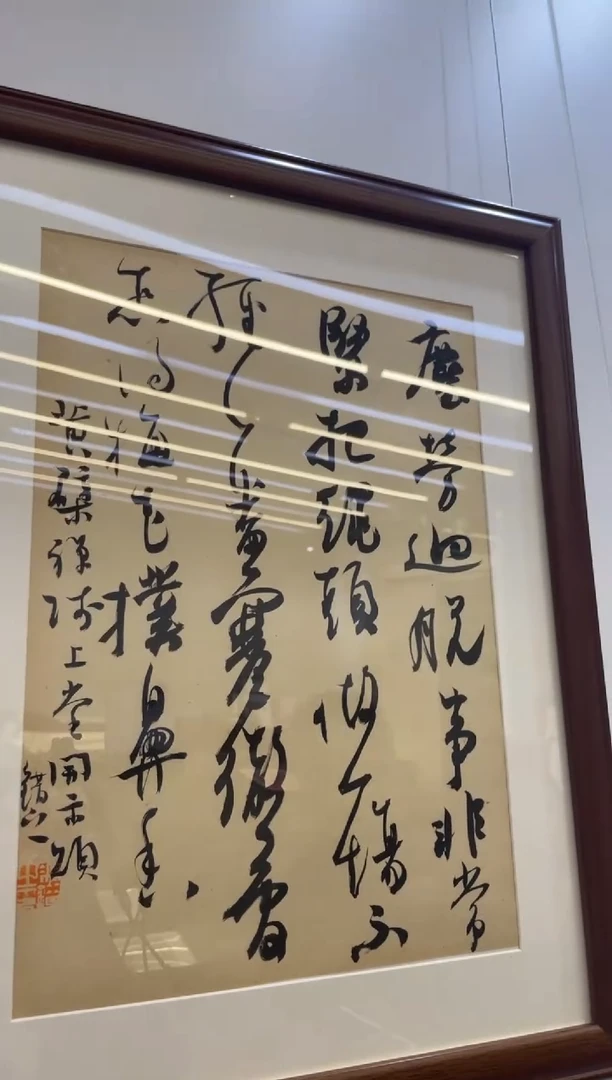 塵勞迴脫事非常
緊把繩頭做一場不
經一番寒徹骨
怎得梅花撲鼻香
黃檗禪師上堂開示頌